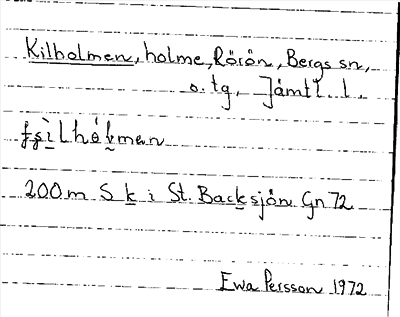 Kilholmen, holme, Rörön, Bergs sn,
o. tg, Jämtl. l.
ʈʂìlhól̬men
200 m S k i St. Backsjön Gn 72
Ewa Persson 1972